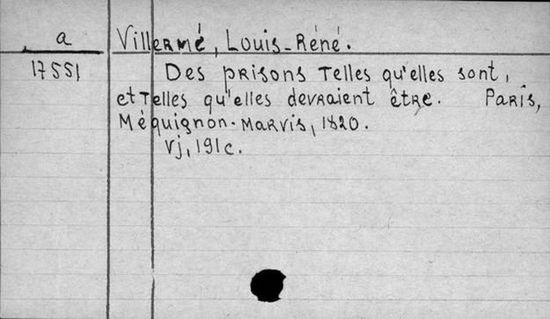 a
17551
Villermé, Louis-Réné.
Des prisons telles qu'elles sont,
et telles qu'elles devraient être. Paris,
Méquignon-Marvis, 1820.
Vj, 191c.